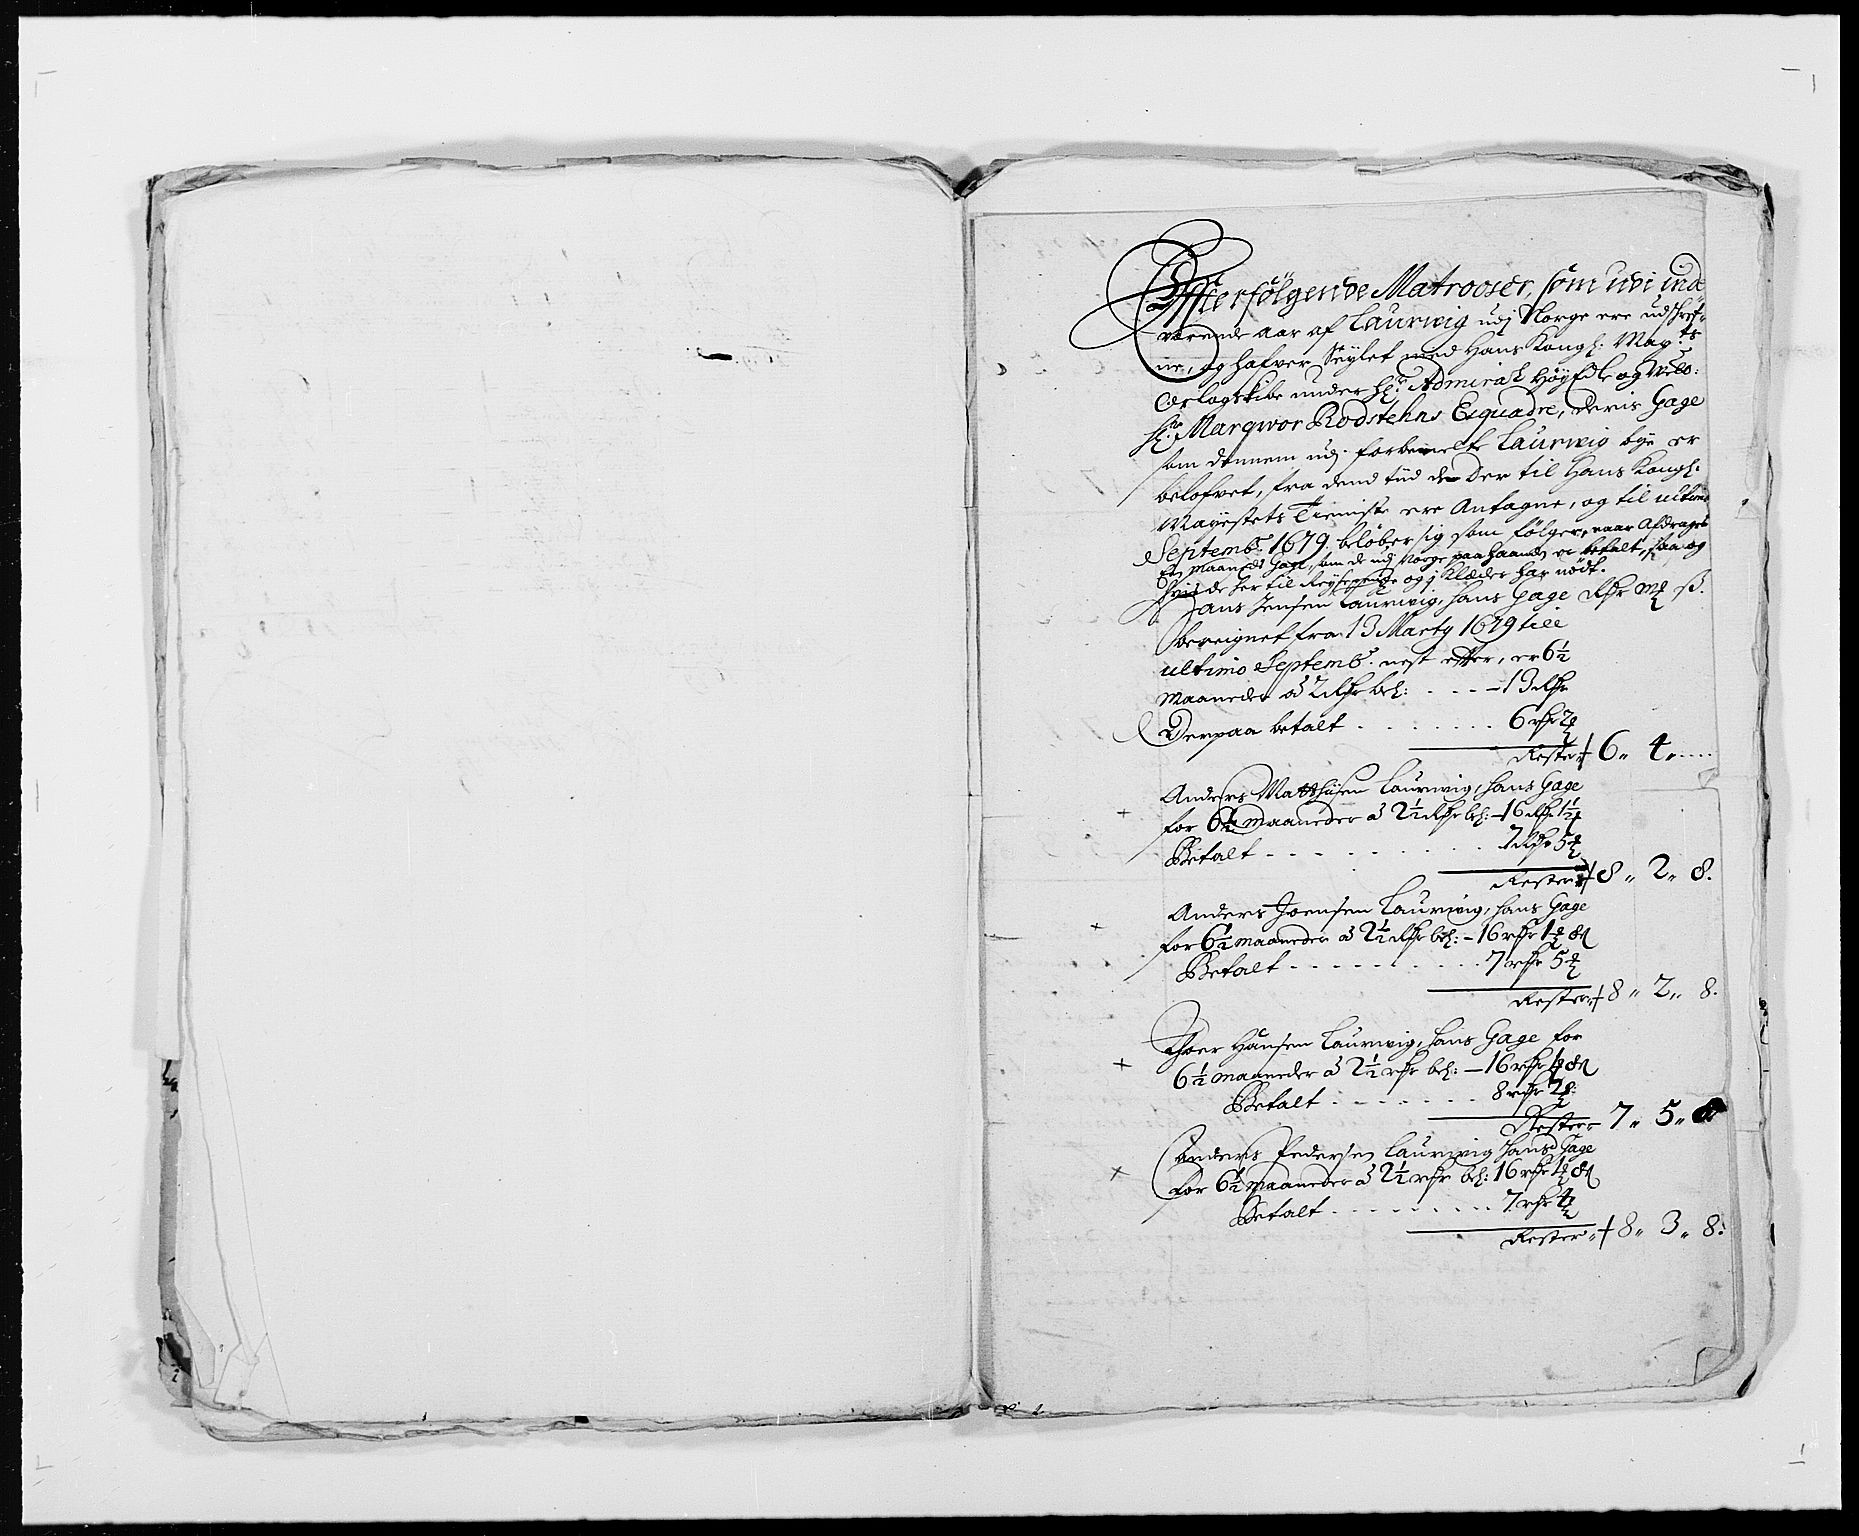 Effterfölgende Matrooser, som udi inde
værende aar af Laurwig udj Norge ere udschref-
ne, og hafver Seylet med Hans Kongl: May:ts
Orlogskibe under Hr: Admiral HöyEdle og Velb:
Hr: Marqwor Rodstehns Esquadre, deris Gage
som dennem udj forbemelte Laurwig bye er
belofvet, fra dend tiid de Der til Hans Kongl:
Mayestets Tieniste ere Antagne, og til ultimo
Septembr: 1679. beløber sig som følger, naar Afdrages
maaneds Gage, som de udj Norge paa haanden er betalt, saa og
hvis de her til Reysepenge og j Klæder har nödt.
Hans Jensen Laurwig, hans Gage Rdr mk ß.
bereignet fra 13 Marty 1679 till
ultimo Septembr: nest efter, er 6½
Maaneder á 2 Rdr bel: - - - - 13 Rdr
Derpaa betalt - - - - - - 6 rdr 2 mk
Rester + 6 „ 4 „ -----
Anders Matthisen Laurwig, hans Gage
for 6½ maaneder á 2½ Rdr bel: - 16 Rdr 1½
Betalt - - - - - - - - 7 Rdr 5 mk
Rester + 8 „ 2 „ 8.
Anders Joensen Laurwig, hans Gage
for 6½ maaneder á 2½ Rdr bel: - 16 rdr 1 mk 8 ß
Betalt - - - - - - - - 7 rdr 5 mk
Rester + 8 „ 2 „ 8.
Thoer Hansen Laurwig, hans Gage for
6½ maaneder á 2½ rdr bel: - 16 rdr 1 mk 8 ß
Betalt - - - - - - - 8 rdr 2 mk:
Rester 7 „ 5 „
Anders Pedersen Laurwig hans Gage
for 6½ maaneder á 2½ rdr bel: 16 rdr 1 mk 8 ß
Betalt - - - - - - - - 7 rdr 4 mk
Rester „ + 8 „ 3 „ 8.